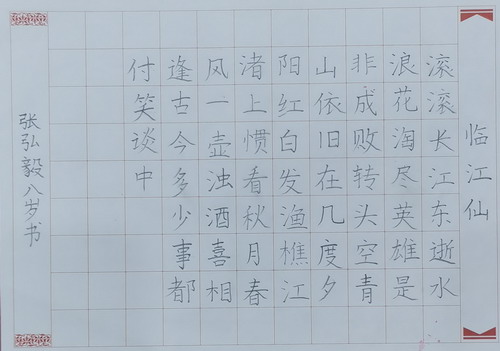 临江仙
滚滚长江东逝水
浪花淘尽英雄是
非成败转头空青
山依旧在几度夕
阳红白发渔樵江
渚上惯看秋月春
风一壶浊酒喜相
逢古今多少事都
付笑谈中
张弘毅八岁书